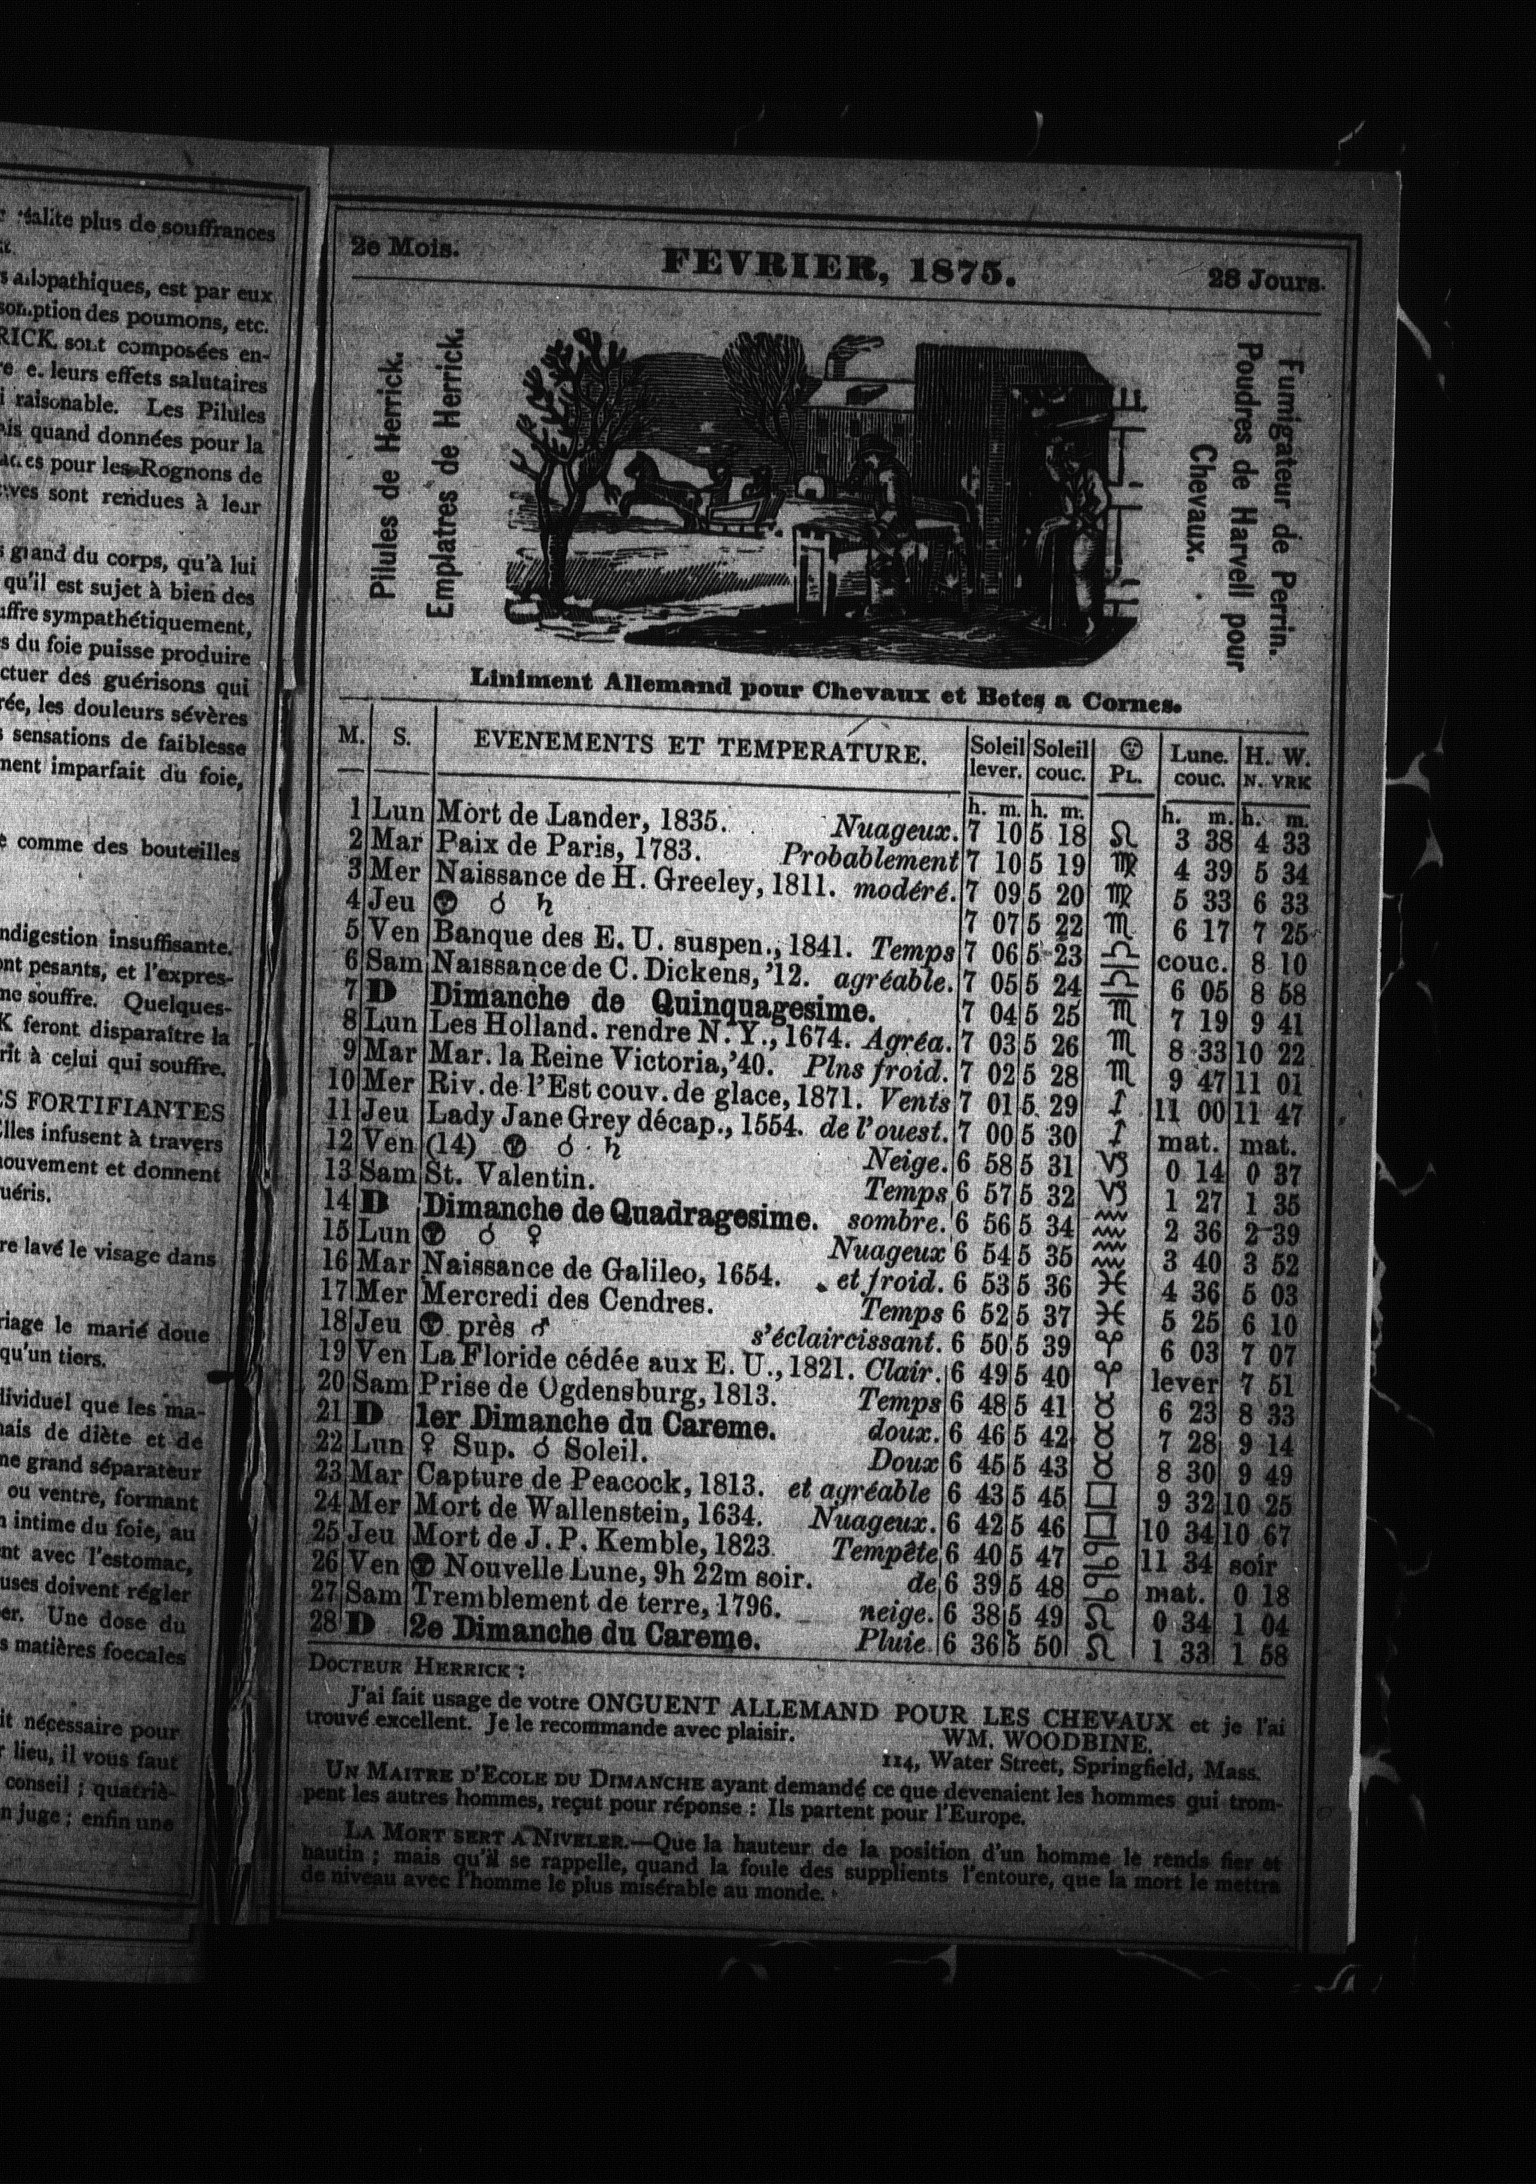 réalite plus de souffrances
allopathiques, est par eux
ption des poumons, etc.
RICK sont composées en-
e. leurs effets salutaires
raisonable. Les Pilules
quand données pour la
pour les Rognons de
sont rendues à leur
grand du corps, qu'à lui
qu'il est sujet à bien des
sympathétiquement,
du foie puisse produire
des guérisons qui
les douleurs sévères
sensations de faiblesse
imparfait du foie,
comme des bouteilles
indigestion insuffisante.
pesants, et l'expres-
souffre. Quelques-
feront disparaître la
à celui qui souffre.
FORTIFIANTES
infusent à travers
mouvement et donnent
lavé le visage dans
le marié doue
qu'un tiers.
que les ma-
de diète et de
grand séparateur
ou ventre, formant
intime du foie, au
avec l'estomac,
doivent régler
Une dose du
matières foecales
nécessaire pour
lieu, il vous faut
conseil ; quatriè-
juge ; enfin une
2e Mois. FEVRIER, 1875. 28 Jours.
Pilules de Herrick.
Emplatres de Herrick.
Fumigateur de Perrin.
Poudres de Harvell pour
Chevaux.
Liniment Allemand pour Chevaux et Betes a Cornes.
M. S. EVENEMENTS ET TEMPERATURE. Soleil lever. Soleil couc. PL. Lune. couc. H. W. N. YRK
h. m. h. m. h. m. h. m.
1 Lun Mort de Lander, 1835. Nuageux. 7 10 5 18 ♌ 3 38 4 33
2 Mar Paix de Paris, 1783. Probablement 7 10 5 19 ♍ 4 39 5 34
3 Mer Naissance de H. Greeley, 1811. modéré. 7 09 5 20 ♍ 5 33 6 33
4 Jeu ☌ ♄ 7 07 5 22 ♏ 6 17 7 25
5 Ven Banque des E. U. suspen., 1841. Temps 7 06 5 23 ♎ couc. 8 10
6 Sam Naissance de C. Dickens, '12. agréable. 7 05 5 24 ♎ 6 05 8 58
7 D Dimanche de Quinquagesime. 7 04 5 25 ♏ 7 19 9 41
8 Lun Les Holland. rendre N. Y., 1674. Agréa. 7 03 5 26 ♏ 8 33 10 22
9 Mar Mar. la Reine Victoria, '40. Plns froid. 7 02 5 28 ♏ 9 47 11 01
10 Mer Riv. de l'Est couv. de glace, 1871. Vents 7 01 5 29 ♐ 11 00 11 47
11 Jeu Lady Jane Grey décap., 1554. de l'ouest. 7 00 5 30 ♐ mat. mat.
12 Ven (14) ☌ ♄ Neige. 6 58 5 31 ♑ 0 14 0 37
13 Sam St. Valentin. Temps 6 57 5 32 ♑ 1 27 1 35
14 D Dimanche de Quadragesime. sombre. 6 56 5 34 ♒ 2 36 2 39
15 Lun ☌ ♀ Nuageux 6 54 5 35 ♒ 3 40 3 52
16 Mar Naissance de Galileo, 1654. et froid. 6 53 5 36 ♓ 4 36 5 03
17 Mer Mercredi des Cendres. Temps 6 52 5 37 ♓ 5 25 6 10
18 Jeu près ♂ s'éclaircissant. 6 50 5 39 ♈ 6 03 7 07
19 Ven La Floride cédée aux E. U., 1821. Clair. 6 49 5 40 ♈ lever 7 51
20 Sam Prise de Ogdensburg, 1813. Temps 6 48 5 41 ♉ 6 23 8 33
21 D 1er Dimanche du Careme. doux. 6 46 5 42 ♉ 7 28 9 14
22 Lun ♀ Sup. ☌ Soleil. Doux 6 45 5 43 ♉ 8 30 9 49
23 Mar Capture de Peacock, 1813. et agréable 6 43 5 45 ♊ 9 32 10 25
24 Mer Mort de Wallenstein, 1634. Nuageux. 6 42 5 46 ♊ 10 34 10 67
25 Jeu Mort de J. P. Kemble, 1823. Tempête 6 40 5 47 ♋ 11 34 soir
26 Ven Nouvelle Lune, 9h 22m soir. de 6 39 5 48 ♋ mat. 0 18
27 Sam Tremblement de terre, 1796. neige. 6 38 5 49 ♌ 0 34 1 04
28 D 2e Dimanche du Careme. Pluie. 6 36 5 50 ♌ 1 33 1 58
DOCTEUR HERRICK :
J'ai fait usage de votre ONGUENT ALLEMAND POUR LES CHEVAUX et je l'ai
trouvé excellent. Je le recommande avec plaisir. WM. WOODBINE.
114, Water Street, Springfield, Mass.
UN MAITRE D'ECOLE DU DIMANCHE ayant demandé ce que devenaient les hommes qui trom-
pent les autres hommes, reçut pour réponse : Ils partent pour l'Europe.
LA MORT SERT A NIVELER.—Que la hauteur de la position d'un homme le rends fier et
hautin ; mais qu'il se rappelle, quand la foule des supplients l'entoure, que la mort le mettra
de niveau avec l'homme le plus misérable au monde.